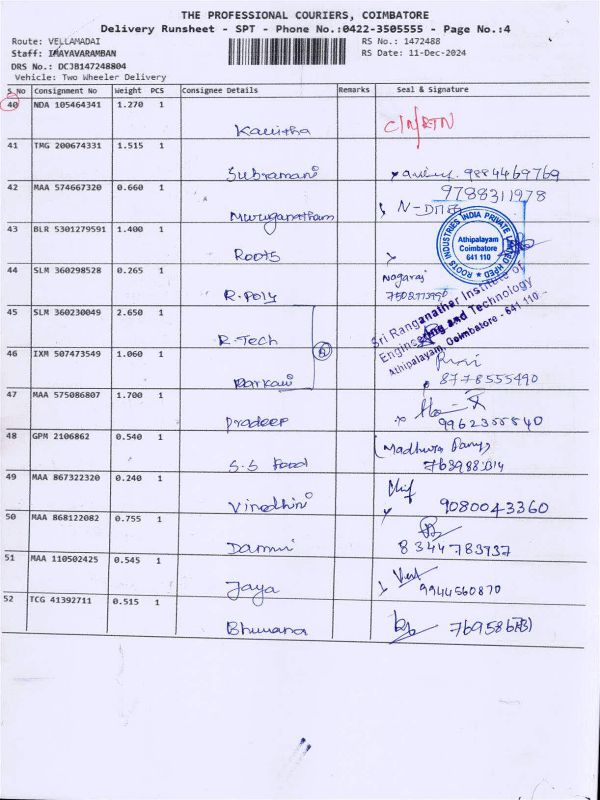 THE PROFESSIONAL COURIERS, COIMBATORE
Delivery Runsheet - SPT - Phone No.:0422-3505555 - Page No.:4
Route: VELLAMADAI
RS No.: 1472488
Staff: IMAYAVARAMBAN
RS Date: 11-Dec-2024
DRS No.: DCJB147248804
Vehicle: Two Wheeler Delivery
S No Consignment No Weight PCS Consignee Details Remarks Seal & Signature
40 NDA 105464341 1.270 1 Kavitha
41 TMG 200674331 1.515 1 Subramani 9884469769
42 MAA 574667320 0.660 1 Muruganatham 9788311978
43 BLR 5301279591 1.400 1 Roots
ROOTS INDUSTRIES INDIA PRIVATE LIMITED
Athipalayam
Coimbatore
641 110
44 SLM 360298528 0.265 1 R.Poly Nagaraj
Sri Ranganathar Institute of
Engineering and Technology
Athipalayam, Coimbatore - 641 110
45 SLM 360230049 2.650 1 R.Tech
46 IXM 507473549 1.060 1 8778555490
47 MAA 575086807 1.700 1 Pradeep
48 GPM 2106862 0.540 1 S.S Food
49 MAA 867322320 0.240 1 Vinodhini 9080043360
50 MAA 868122082 0.755 1 8344783937
51 MAA 110502425 0.545 1 Jaya 9944560870
52 TCG 41392711 0.515 1 Bhuvana